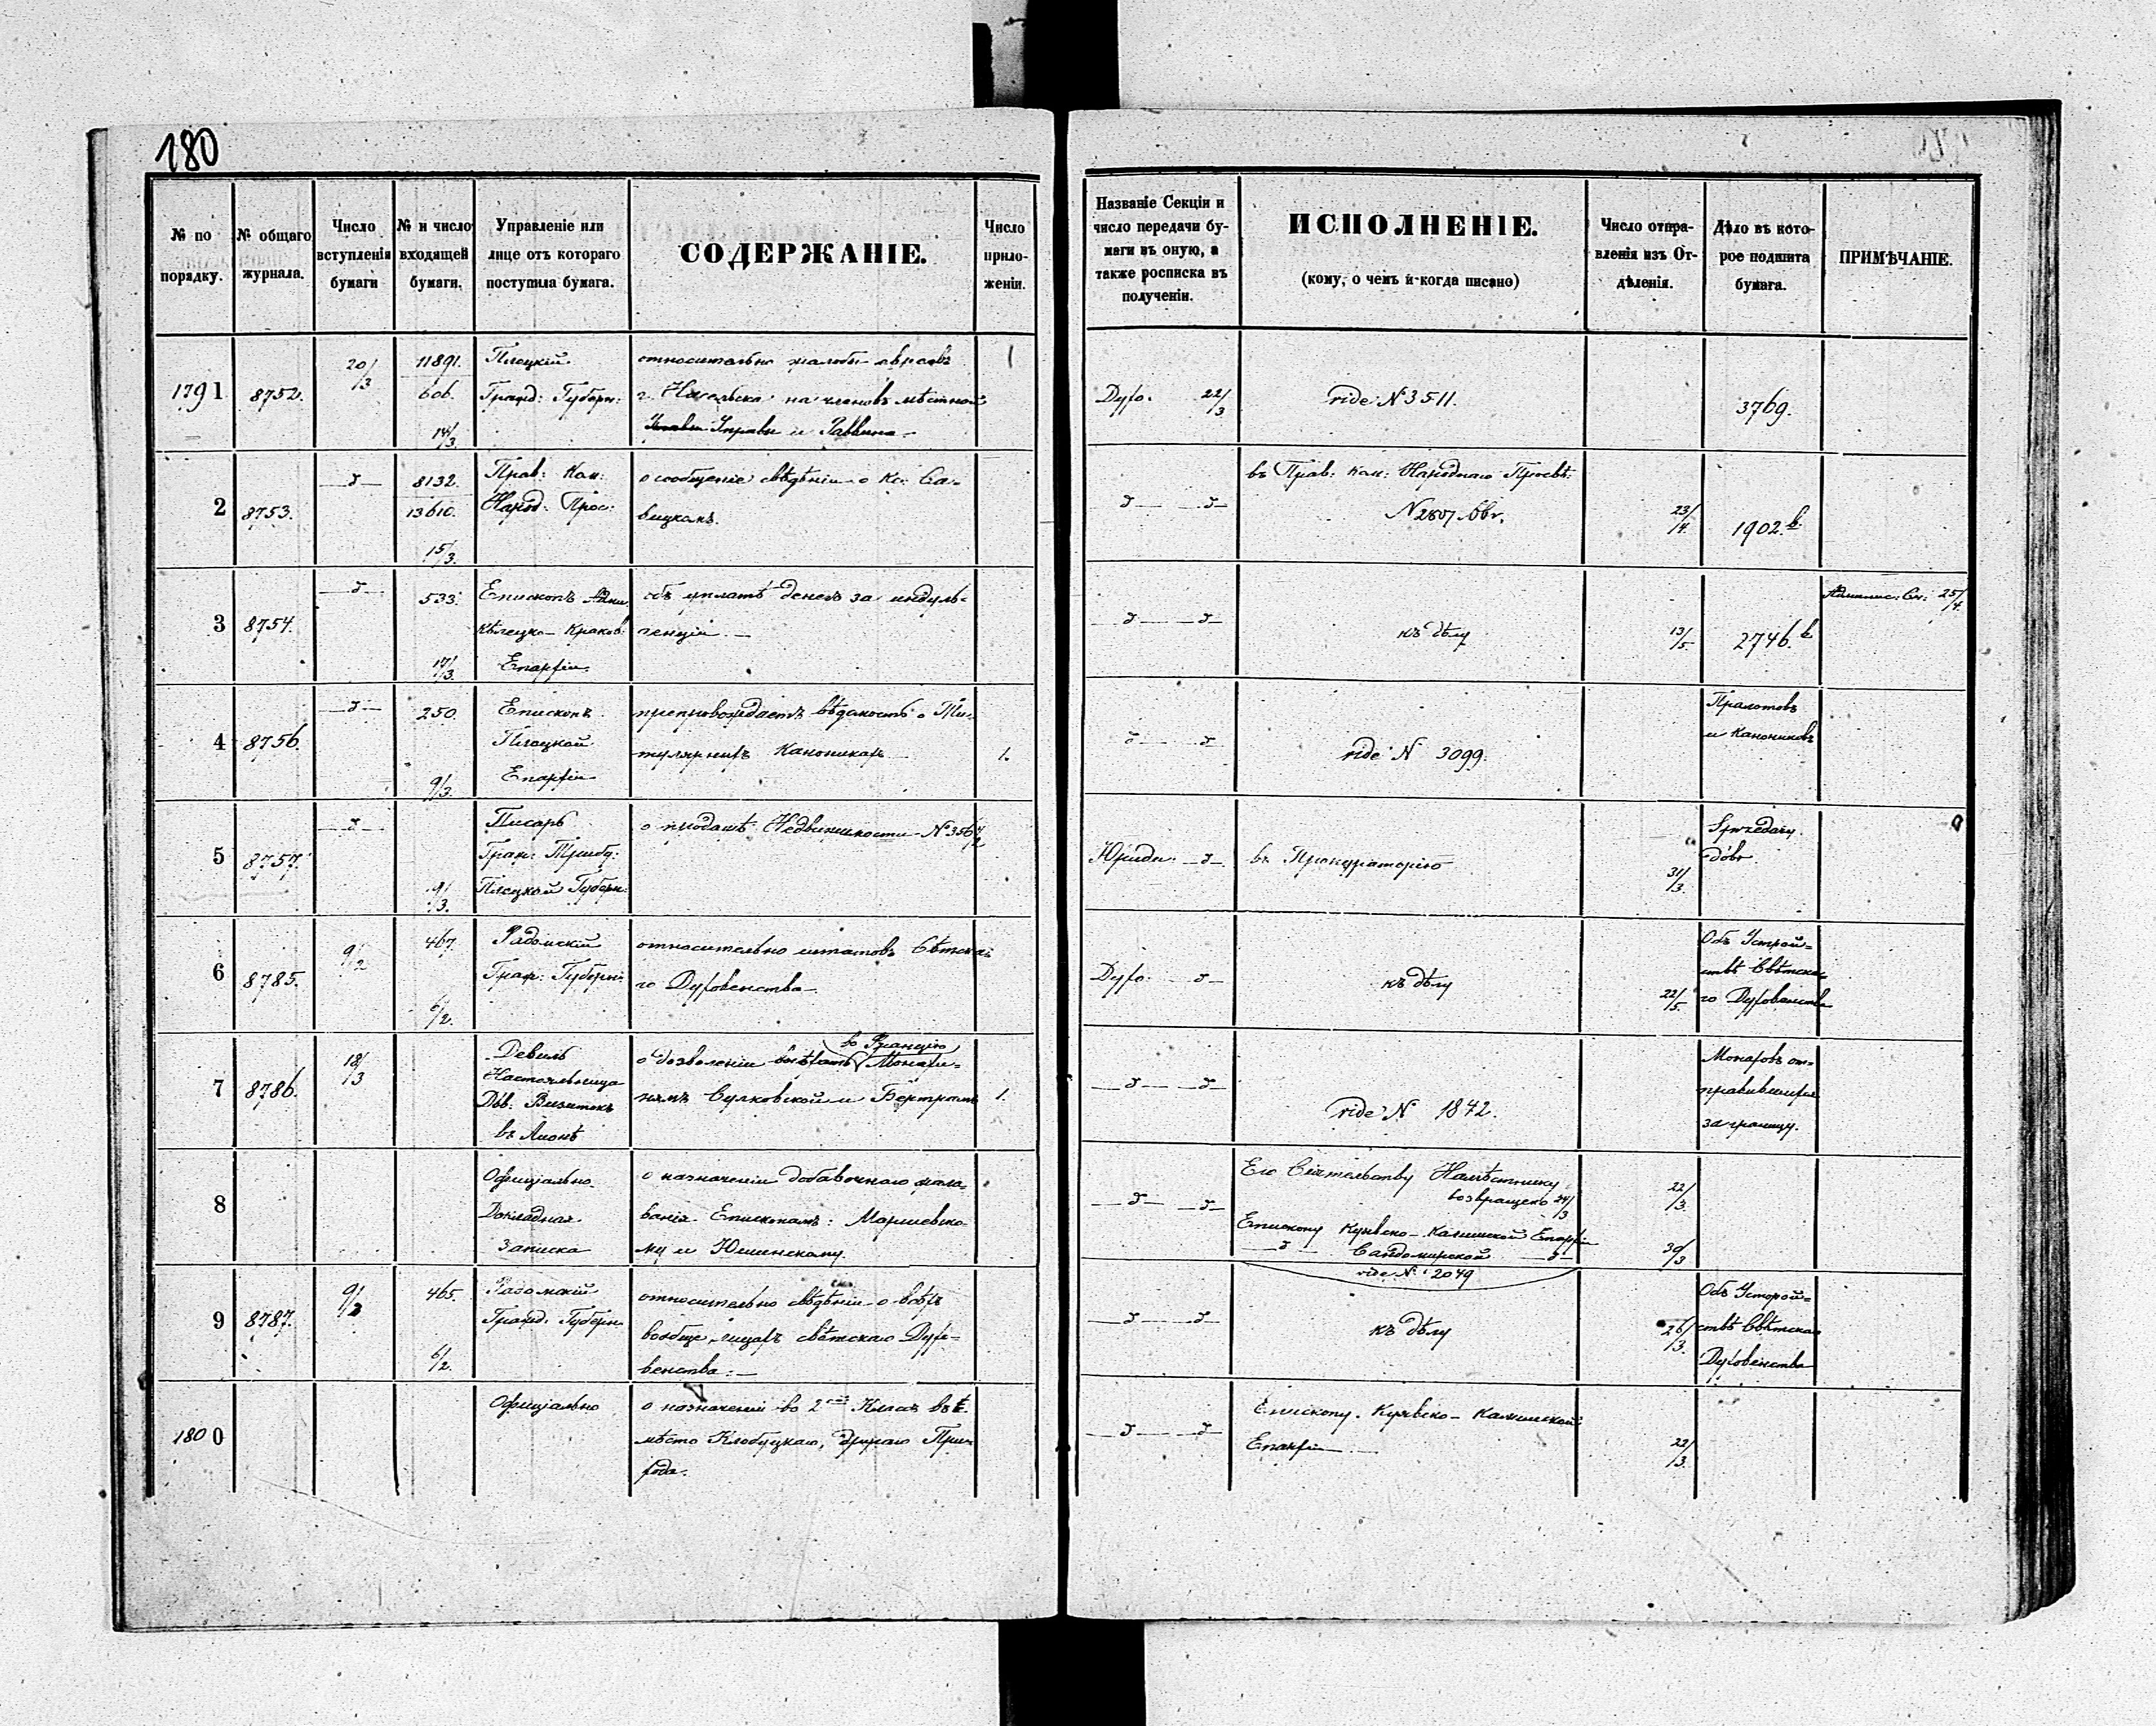 180
№ по порядку.
№ общаго журнала.
Число вступленія бумаги
№ и число входящей бумаги.
Управленіе или лице отъ котораго поступила бумага.
СОДЕРЖАНІЕ.
Число приложеніи.
Названіе Секціи и число передачи бумаги въ оную, а также росписка въ полученіи.
ИСПОЛНЕНІЕ.
(кому, о чемъ и когда писано)
Число отправленія изъ Отдѣленія.
Дѣло въ которое подшита бумага.
ПРИМѢЧАНІЕ.
1791 8752. 20/3 11891. 606. 14/3.
Плоцкій
Гражд: Губерн:
относительно жалобы евреевъ
г. Насельска на членовъ мѣстной
Управы и Раввина
1
Духо. 22/3
vide N 3511.
3769.
2 8753. 8132. 13610. 15/3.
Прав: Ком:
Народ: Прос:
о сообщеніе свѣдѣніи о Кс: Са-
вицкомъ.
въ Прав: Ком: Народнаго Просвѣ:
N 2807
23/4. 1902.
3 8754. 533. 17/3.
Епископъ
Кѣлецко-Краков:
Епархіи.
объ уплатѣ денегъ за индуль-
генціи.
къ дѣлу
13/5. 2746.
25/4.
4 8756. 250. 9/3.
Епископъ
Плоцкой
Епархіи
препровождаетъ вѣдомость о Ти-
тулярныхъ Каноникахъ
1.
vide N 3099.
Пралотовъ
и Канониковъ
5 8757. 9/3.
Писарь
Граж: Трибу:
Плоцкой Губерн:
о продажѣ Недвижимости N 356
Юриди:
въ Прокураторію
31/3.
Sprzedaży
dóbr
6 8785. 9/2 467. 6/2.
Радомскій
Граж: Губерн:
относительно штатовъ Свѣтска-
го Духовенства
Духо.
къ дѣлу
22/5.
Объ Устрой-
ствѣ Свѣтска-
го Духовенства
7 8786. 18/3
Девиль
Настоятельница
Дѣв: Визитокъ
въ Ліонѣ
во Францію
о дозволеніи выѣхать Монахи-
нямъ Сулковской и Бертрамъ
1.
vide N 1842.
Монаховъ от-
правившихся
за границу.
8
Офиціально
Докладная
Записка
о назначеніи добавочнаго жало-
ванія Епископамъ: Маршевско-
му и Юшинскому.
Его Сіятельству Намѣстнику
возвращено 24/3
22/3.
Епископу Куявско-Калишской Епархіи
Сандомирской
30/3
vide N 2049
9 8787. 9/2 465. 6/2.
Радомскій
Гражд: Губерн:
относительно свѣдѣніи о всѣхъ
вообще лицахъ свѣтскаго Духо-
венства.
къ дѣлу
26/3.
Объ Устрой-
ствѣ Свѣтска
Духовенства
1800
Офиціально
о назначеніи во 2 Класъ
мѣсто Клобуцкаго, другаго При-
хода.
Епископу Куявско-Калишской
Епархіи
22/3.